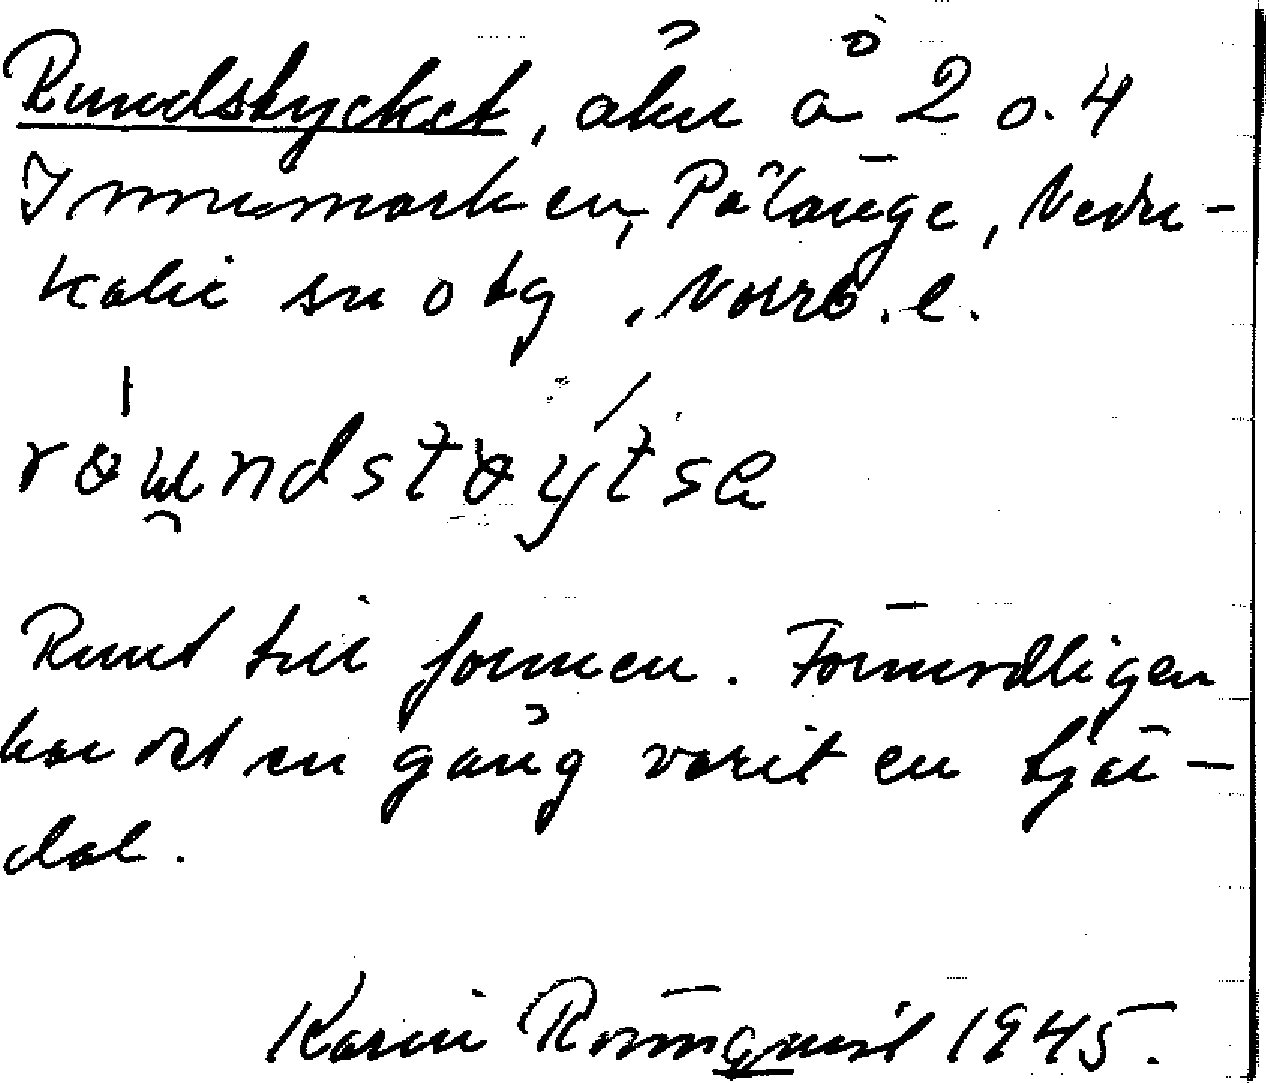 Rundstycket, åker å 2 o. 4
Innemarken, Pålänge, Neder-
kalix sn o tg, Norrb. l.
röundstöytse
Runt till formen. Förmodligen
har det en gång varit en tjär-
dal.
Karin Rönnquist 1945.